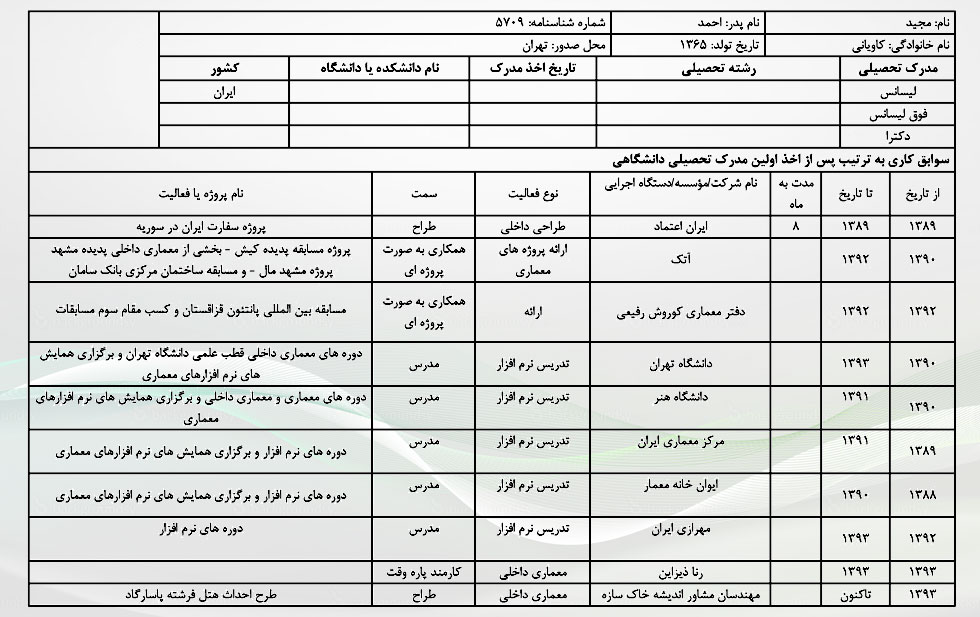 نام: مجید نام پدر: احمد شماره شناسنامه: ۵۷۰۹
نام خانوادگی: کاویانی تاریخ تولد: ۱۳۶۵ محل صدور: تهران
مدرک تحصیلی رشته تحصیلی تاریخ اخذ مدرک نام دانشکده یا دانشگاه کشور
لیسانس ایران
فوق لیسانس
دکترا
سوابق کاری به ترتیب پس از اخذ اولین مدرک تحصیلی دانشگاهی
از تاریخ تا تاریخ مدت به ماه نام شرکت/مؤسسه/دستگاه اجرایی نوع فعالیت سمت نام پروژه یا فعالیت
۱۳۸۹ ۱۳۸۹ ۸ ایران اعتماد طراحی داخلی طراح پروژه سفارت ایران در سوریه
۱۳۹۰ ۱۳۹۲ آتک ارائه پروژه های معماری همکاری به صورت پروژه ای پروژه مسابقه پدیده کیش - بخشی از معماری داخلی پدیده مشهد
پروژه مشهد مال - و مسابقه ساختمان مرکزی بانک سامان
۱۳۹۲ ۱۳۹۲ دفتر معماری کوروش رفیعی ارائه همکاری به صورت پروژه ای مسابقه بین المللی پانتئون قزاقستان و کسب مقام سوم مسابقات
۱۳۹۰ ۱۳۹۳ دانشگاه تهران تدریس نرم افزار مدرس دوره های معماری داخلی قطب علمی دانشگاه تهران و برگزاری همایش
های نرم افزارهای معماری
۱۳۹۰ ۱۳۹۱ دانشگاه هنر تدریس نرم افزار مدرس دوره های معماری و معماری داخلی و برگزاری همایش های نرم افزارهای
معماری
۱۳۸۹ ۱۳۹۱ مرکز معماری ایران تدریس نرم افزار مدرس دوره های نرم افزار و برگزاری همایش های نرم افزارهای معماری
۱۳۸۸ ۱۳۹۰ ایوان خانه معمار تدریس نرم افزار مدرس دوره های نرم افزار و برگزاری همایش های نرم افزارهای معماری
۱۳۹۲ ۱۳۹۳ مهرازی ایران تدریس نرم افزار مدرس دوره های نرم افزار
۱۳۹۳ ۱۳۹۳ رنا دیزاین معماری داخلی کارمند پاره وقت
۱۳۹۳ تاکنون مهندسان مشاور اندیشه خاک سازه معماری داخلی طراح طرح احداث هتل فرشته پاسارگاد